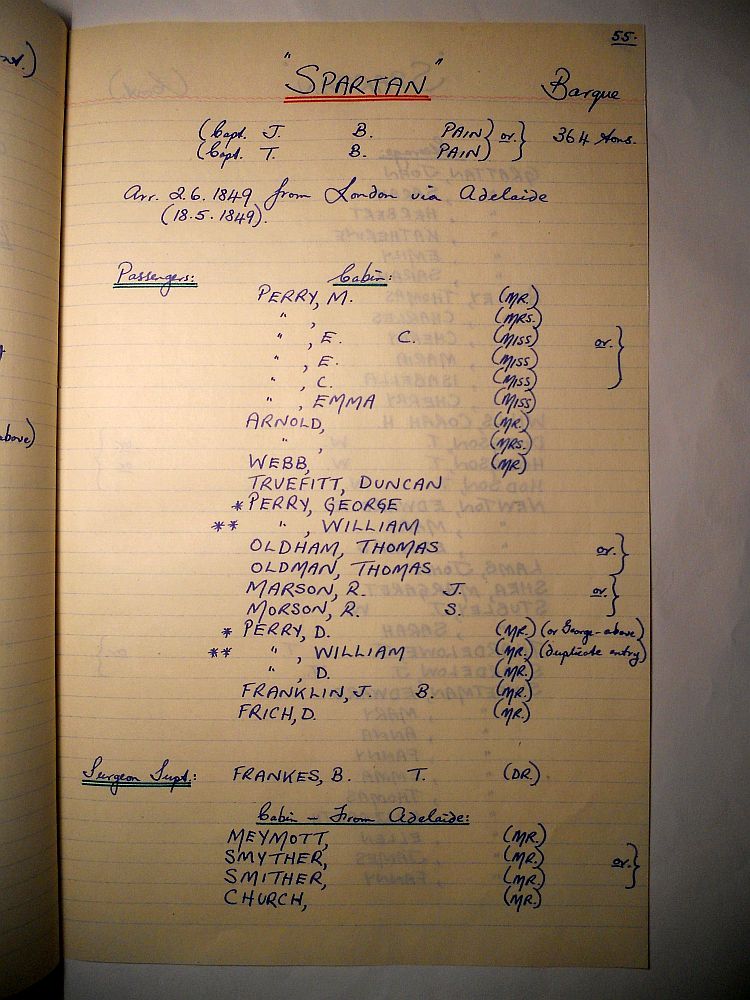 55.
"SPARTAN" Barque
(Capt. J. B. PAIN) or. } 364 tons.
(Capt. T. B. PAIN)
Arr. 2.6.1849 from London via Adelaide
(18.5.1849).
Passengers: Cabin:
PERRY, M. (MR.)
" , (MRS.)
" , E. C. (MISS) or. }
" , E. (MISS)
" , C. (MISS)
" , EMMA (MISS)
ARNOLD, (MR.)
" , (MRS.)
WEBB, (MR)
TRUEFITT, DUNCAN
* PERRY, GEORGE
** " , WILLIAM
OLDHAM, THOMAS or. }
OLDMAN, THOMAS
MARSON, R. J. or. }
MORSON, R. S.
* PERRY, D. (MR.) (or George-above)
** " , WILLIAM (MR.) (duplicate entry)
" , D. (MR.)
FRANKLIN, J. B. (MR.)
FRICH, D. (MR.)
Surgeon Supt.: FRANKES, B. T. (DR.)
Cabin - From Adelaide:
MEYMOTT, (MR.)
SMYTHER, (MR.) or. }
SMITHER, (MR.)
CHURCH, (MR.)
above)